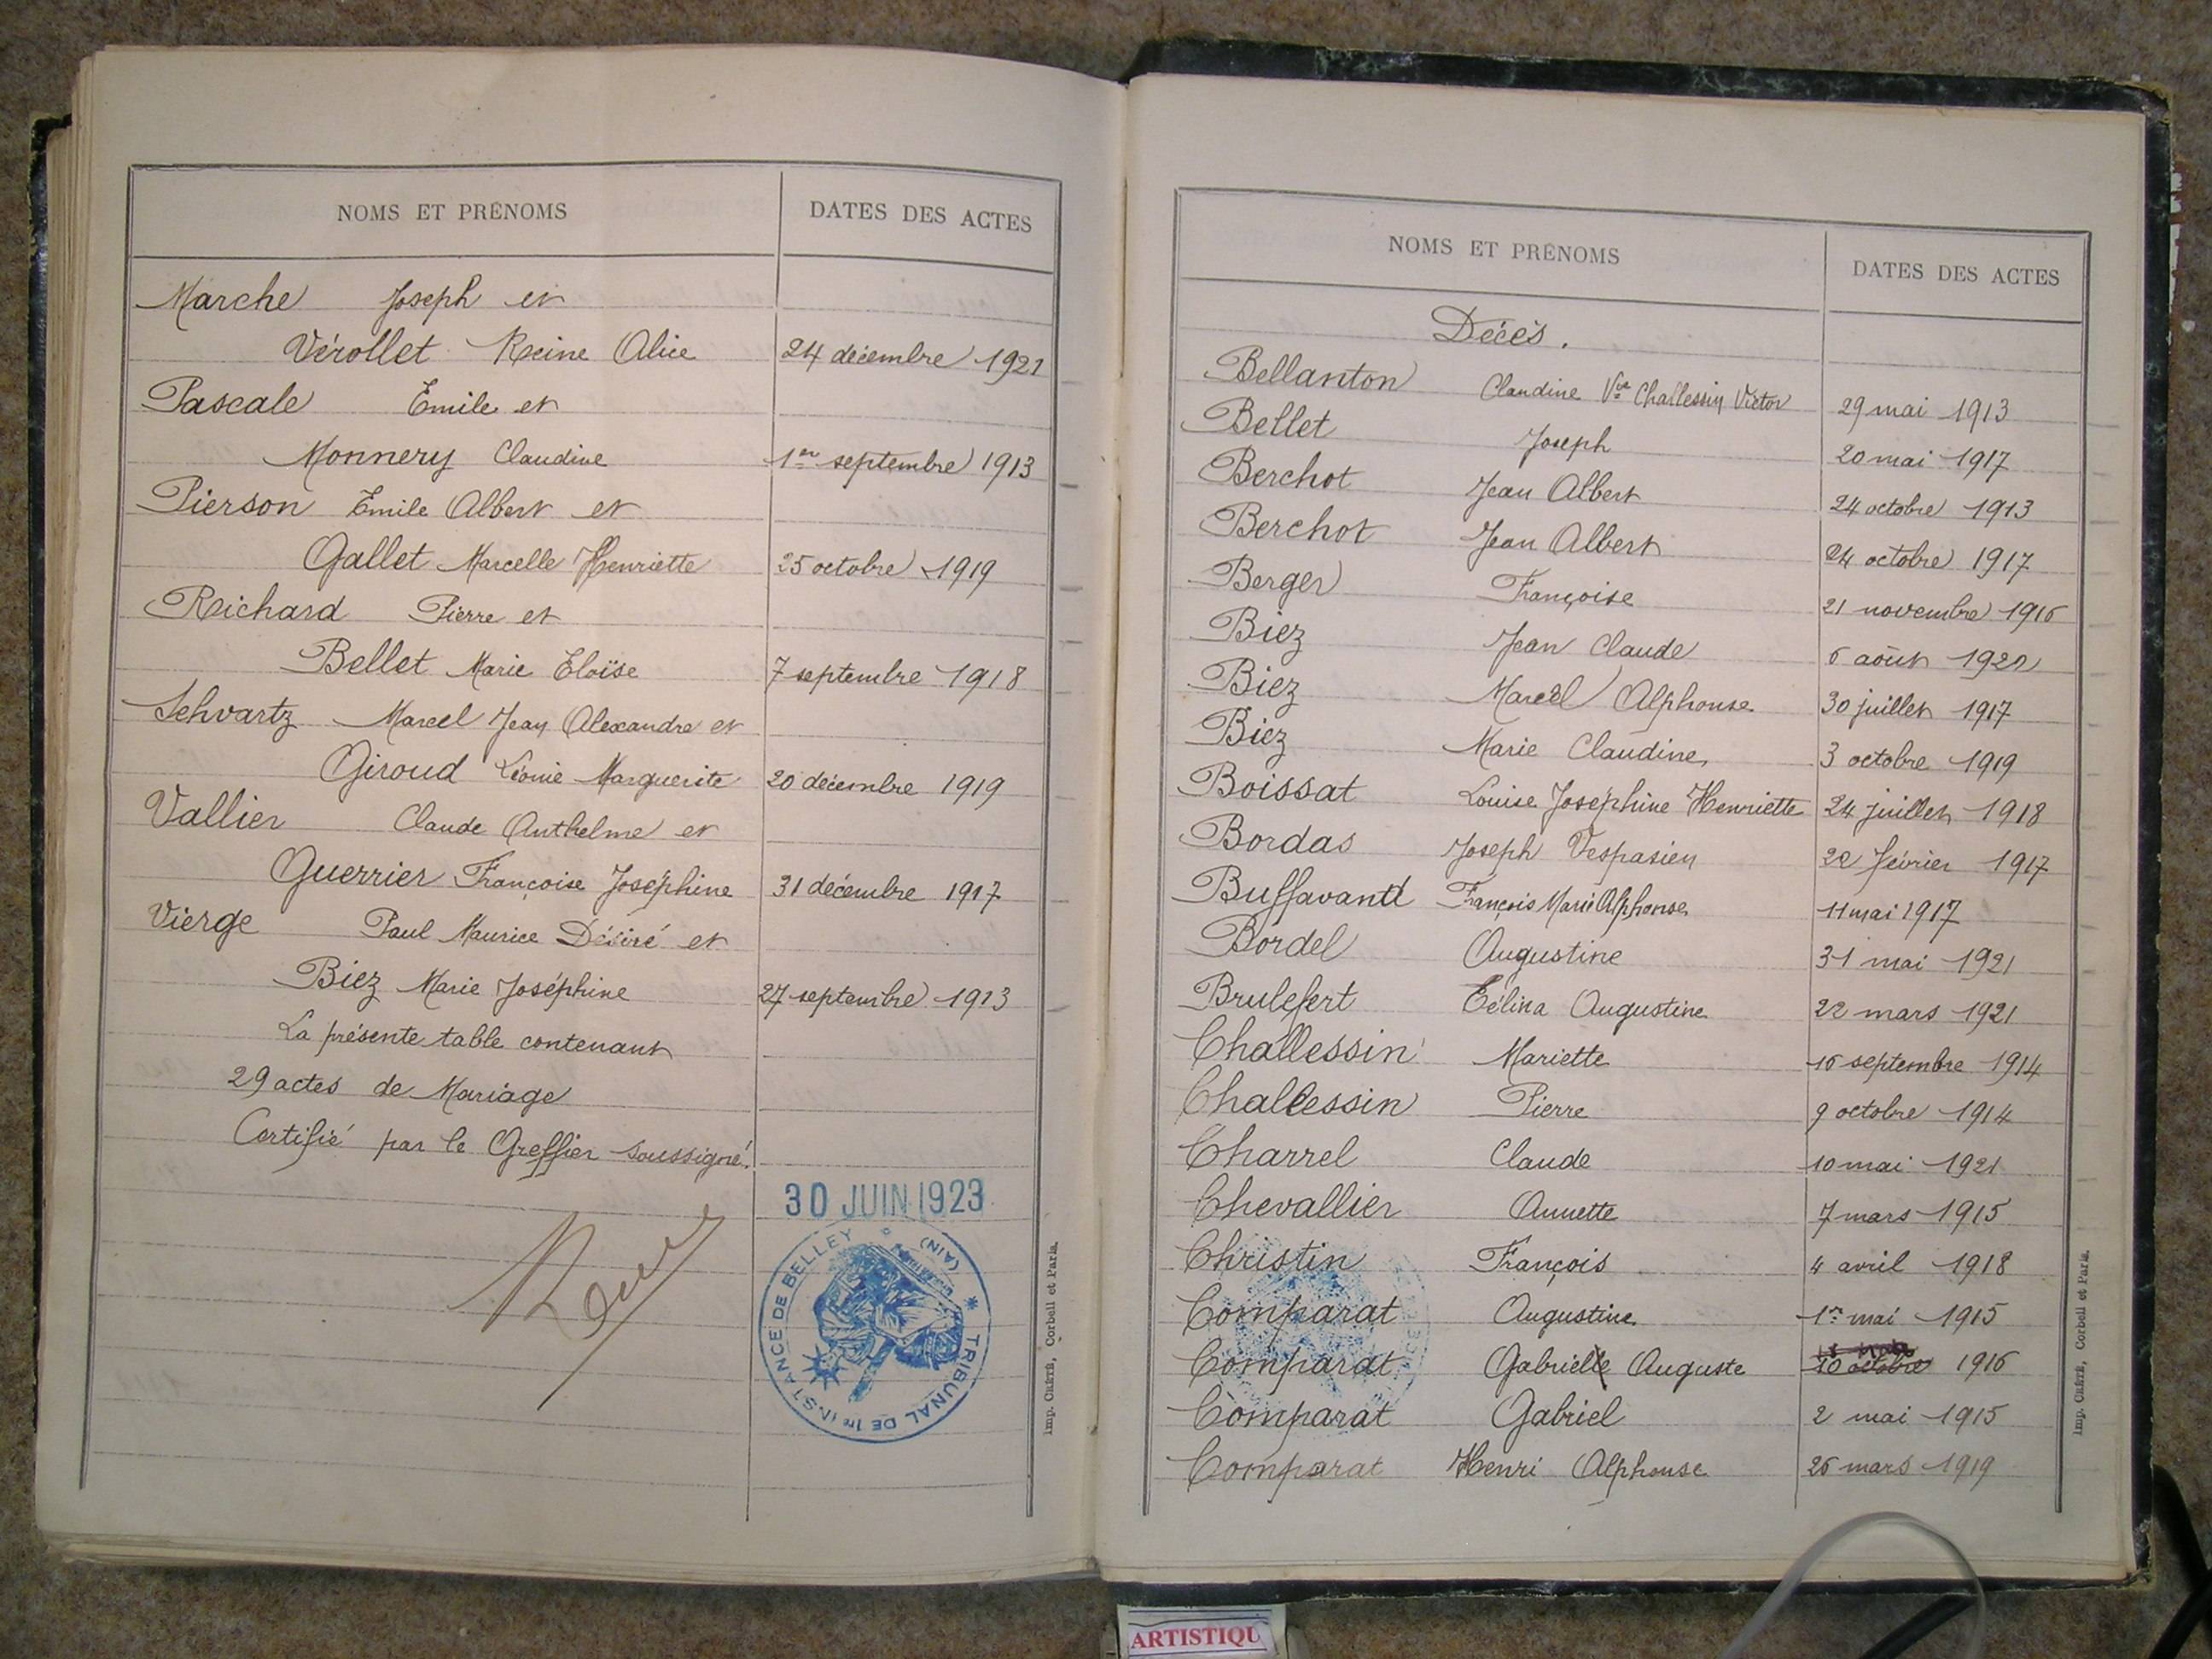 NOMS ET PRÉNOMS DATES DES ACTES
Marche Joseph et
Vérollet Reine Alice 24 décembre 1921
Pascale Emile et
Monnery Claudine 1er septembre 1913
Pierson Emile Albert et
Gallet Marcelle Henriette 25 octobre 1919
Reichard Pierre et
Bellet Marie Eloïse 7 septembre 1918
Schvartz Marcel Jean Alexandre et
Giroud Léonie Marguerite 20 décembre 1919
Vallier Claude Anthelme et
Guerrier Françoise Joséphine 31 décembre 1917
Vierge Paul Maurice Désiré et
Biez Marie Joséphine 27 septembre 1913
La présente table contenant
29 actes de Mariage
Certifié par le Greffier soussigné.
30 JUIN 1923
TRIBUNAL DE 1re INSTANCE DE BELLEY (AIN)
Imp. CRÉTÉ, Corbeil et Paris.
NOMS ET PRÉNOMS DATES DES ACTES
Décès.
Bellanton Claudine Vve Challessin Victor 29 mai 1913
Bellet Joseph 20 mai 1917
Berchot Jean Albert 24 octobre 1913
Berchot Jean Albert 24 octobre 1917
Berger Françoise 21 novembre 1916
Biez Jean Claude 6 août 1920
Biez Marcel Alphonse 30 juillet 1917
Biez Marie Claudine 3 octobre 1919
Boissat Louise Joséphine Henriette 24 juillet 1918
Bordas Joseph Vespasien 22 février 1917
Buffavand François Marie Alphonse 11 mai 1917
Bordel Augustine 31 mai 1921
Brulefert Célina Augustine 22 mars 1921
Challessin Mariette 16 septembre 1914
Challessin Pierre 9 octobre 1914
Charrel Claude 10 mai 1921
Chevallier Annette 7 mars 1915
Christin François 4 avril 1918
Comparat Augustine 1er mai 1915
Comparat Gabrielle Auguste 10 octobre 1916
Comparat Gabriel 2 mai 1915
Comparat Henri Alphonse 26 mars 1919
Imp. CRÉTÉ, Corbeil et Paris.
ARTISTIQU